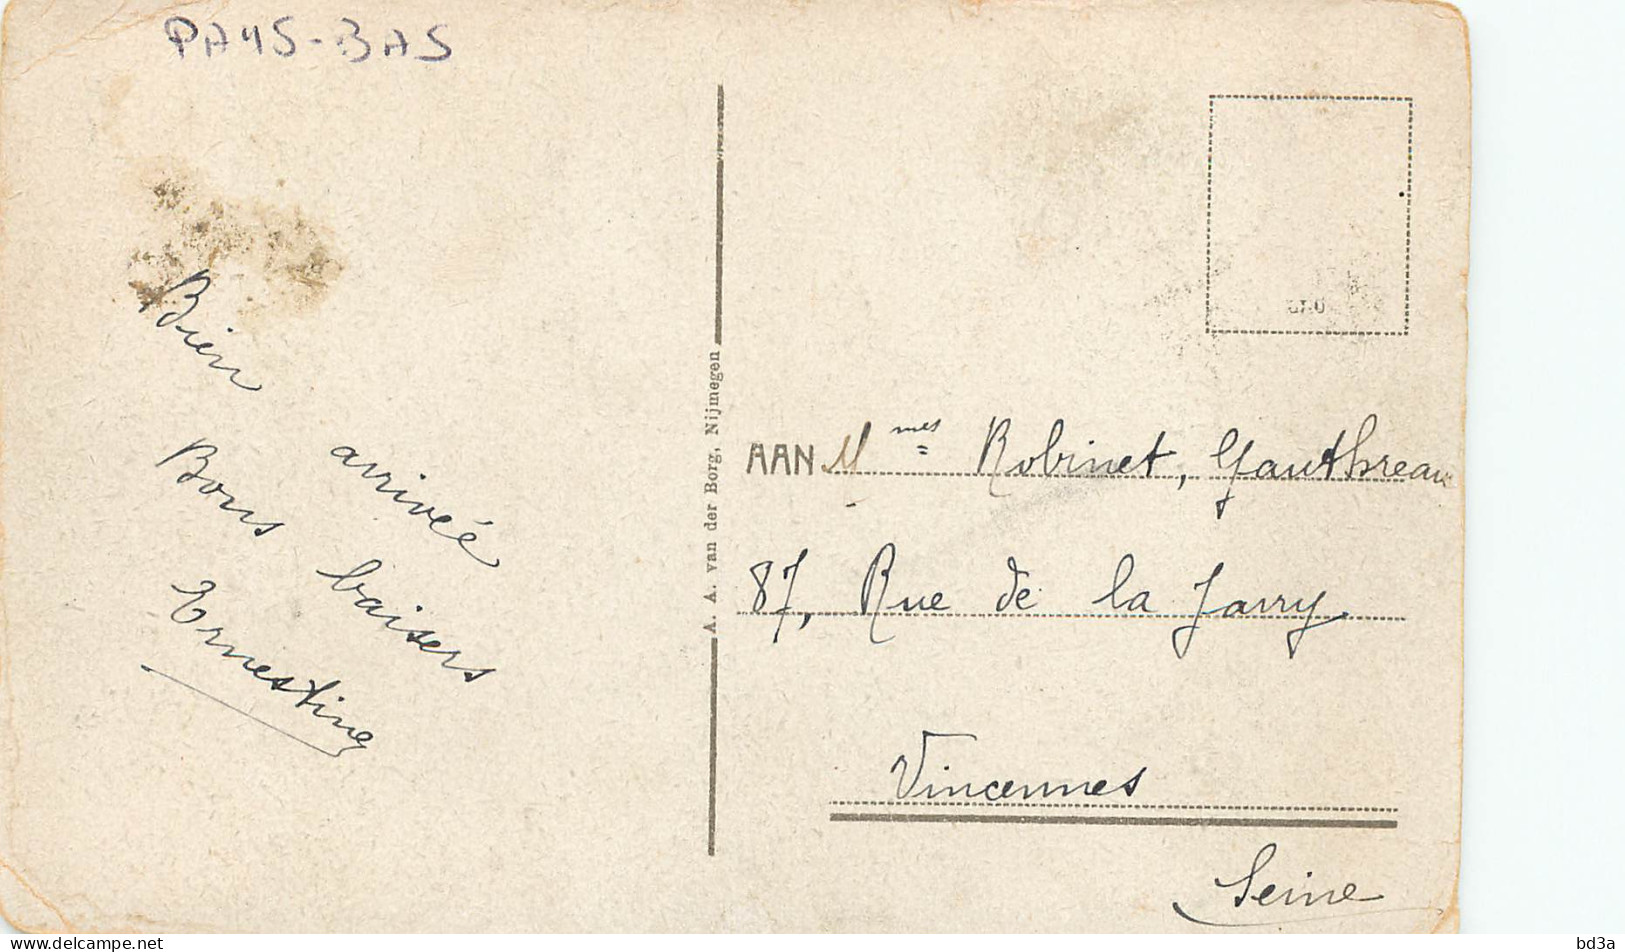 PAYS-BAS
Bien
arrivée
Bons baisers
Ernestine
A. A. van der Borg, Nijmegen
AAN Mmes Robinet, Gauthreau
87, Rue de la Jarry
Vincennes
Seine
www.delcampe.net
bd3a